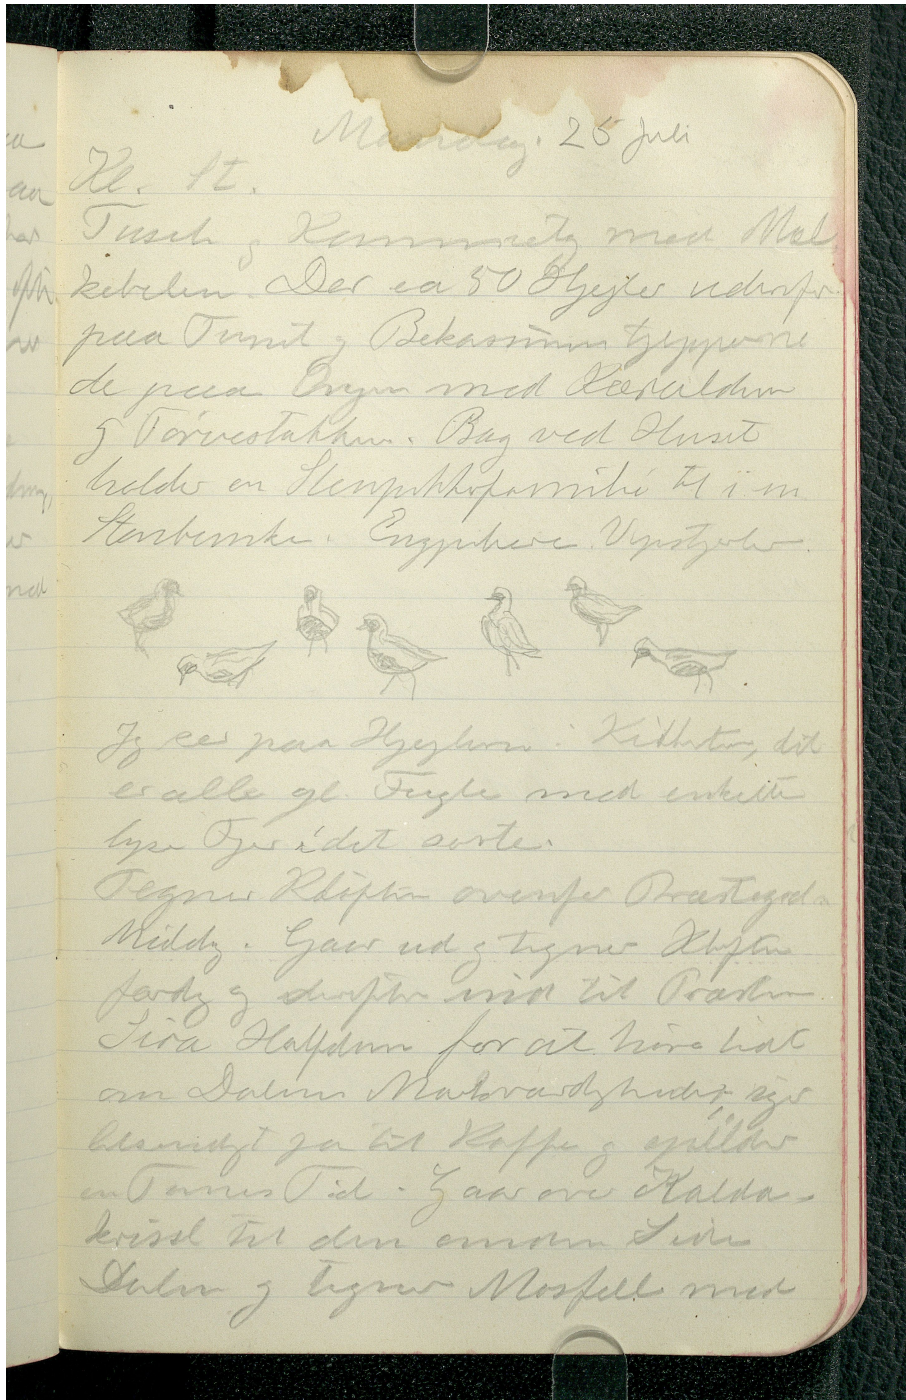 Mandag. 25 Juli
Kl. St.
Tusch og med Mal
kebolen. Der ca 50 Hjejler udenfor
paa Tunet og Bekassinen
de paa Engen med Kæruldum
og Tørvestakken. Bag ved Huset
holder en Stenpikkefamilie til i en
Stenbunke. Engpibere. Vipstjerter.
Jeg ser paa Hjejlerne i Kikkerten, det
er alle gl. Fugle med enkelte
lyse Fjer i det sorte.
Tegner Kløften ovenfor Præstegod
Middag. Gaar ud og tegner Kløften
færdig og derefter ind til Præsten
Sira Halfdan for at høre lidt
om Dalens Mærkværdigheder, siger
ja til Kaffe og
en Times Tid. Gaar over Kalda-
kvisl til den anden Side
Dalen og tegner Mosfell med